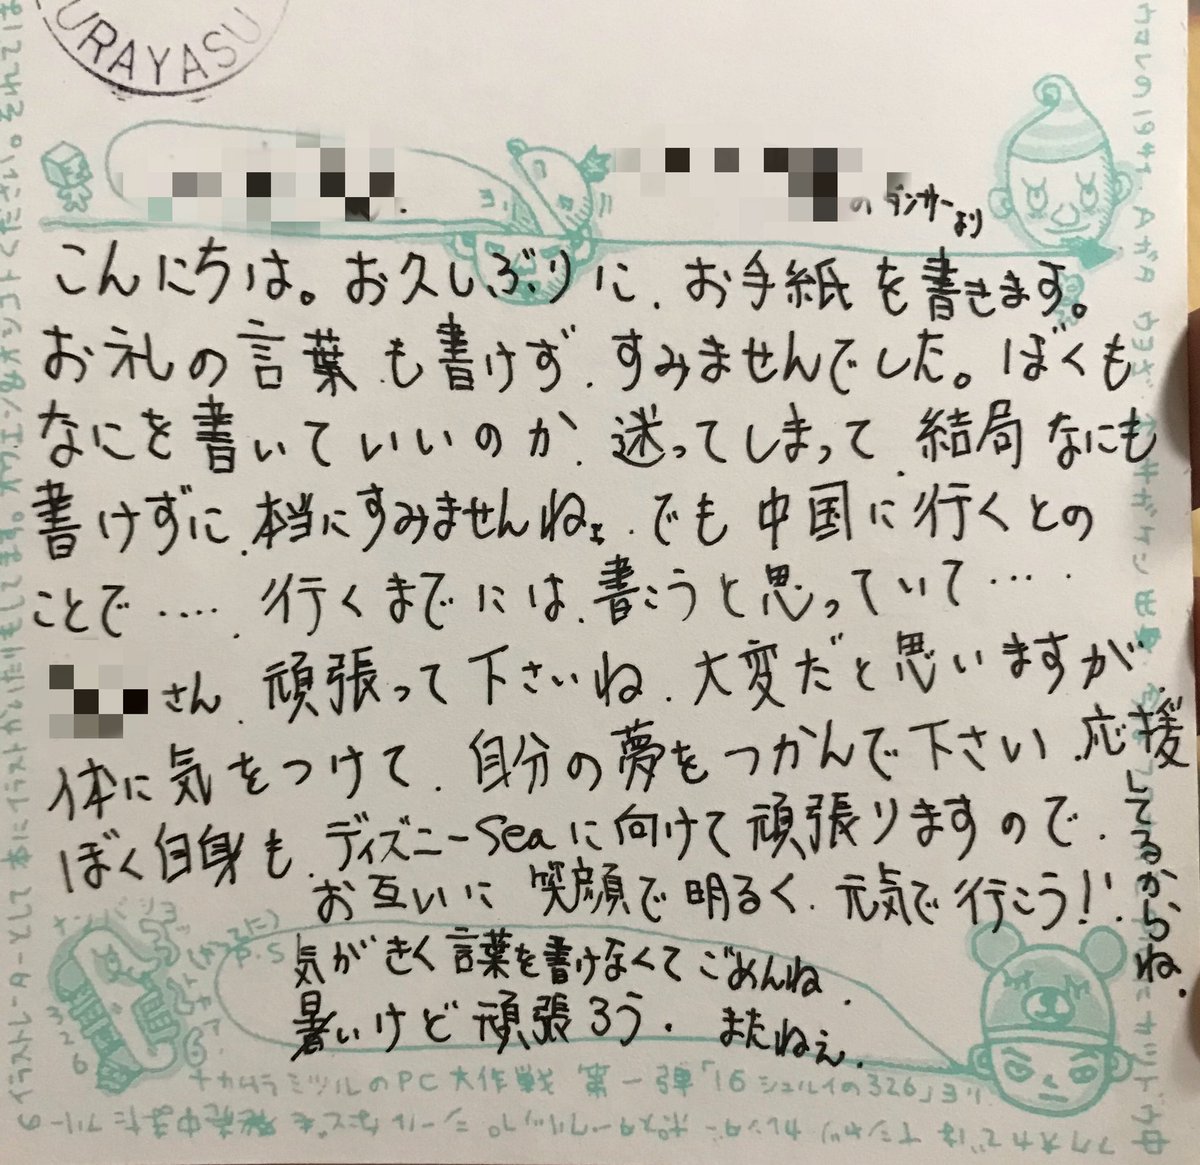 URAYASU
のダンサーより
こんにちは。お久しぶりに、お手紙を書きます。
お礼の言葉も書けず、すみませんでした。ぼくも
なにを書いていいのか、迷ってしまって、結局なにも
書けずに、本当にすみませんねぇ、でも中国に行くとの
ことで‥‥、行くまでには、書こうと思っていて‥‥、
さん、頑張って下さいね、大変だと思いますが、
体に気をつけて、自分の夢をつかんで下さい、応援してるからね、
ぼく自身も、ディズニーseaに向けて頑張りますので、
お互いに笑顔で明るく、元気で行こう!!
P.S
気がきく言葉を書けなくてごめんね、
暑いけど頑張ろう、またねぇ、
ナカムラミツルのPC大作戦 第一弾「16シュルイの326」ヨリ